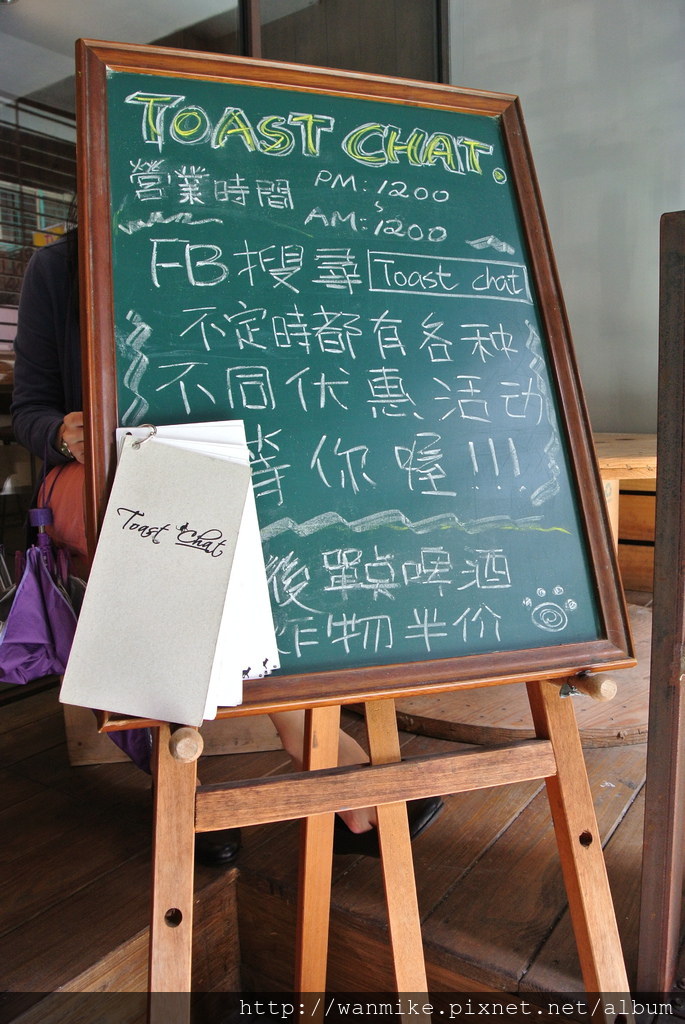 TOAST CHAT.
營業時間 PM:1200
~
AM:1200
FB搜尋 Toast chat
不定時都有各种
不同优惠活动
等你喔!!!
後單點啤酒
炸物半价
Toast Chat
http://wanmike.pixnet.net/album